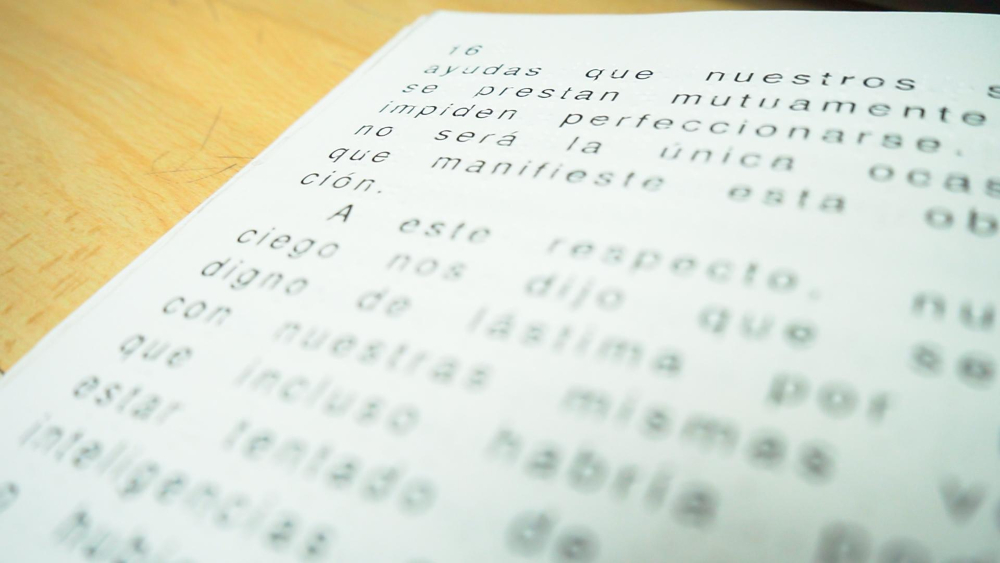 16
ayudas que nuestros s
se prestan mutuamente
impiden perfeccionarse.
no será la única ocas
que manifieste esta ob
ción.
A este respecto, nu
ciego nos dijo que se
digno de lástima por
con nuestras mismas v
que incluso habría
estar tentado de
inteligencias